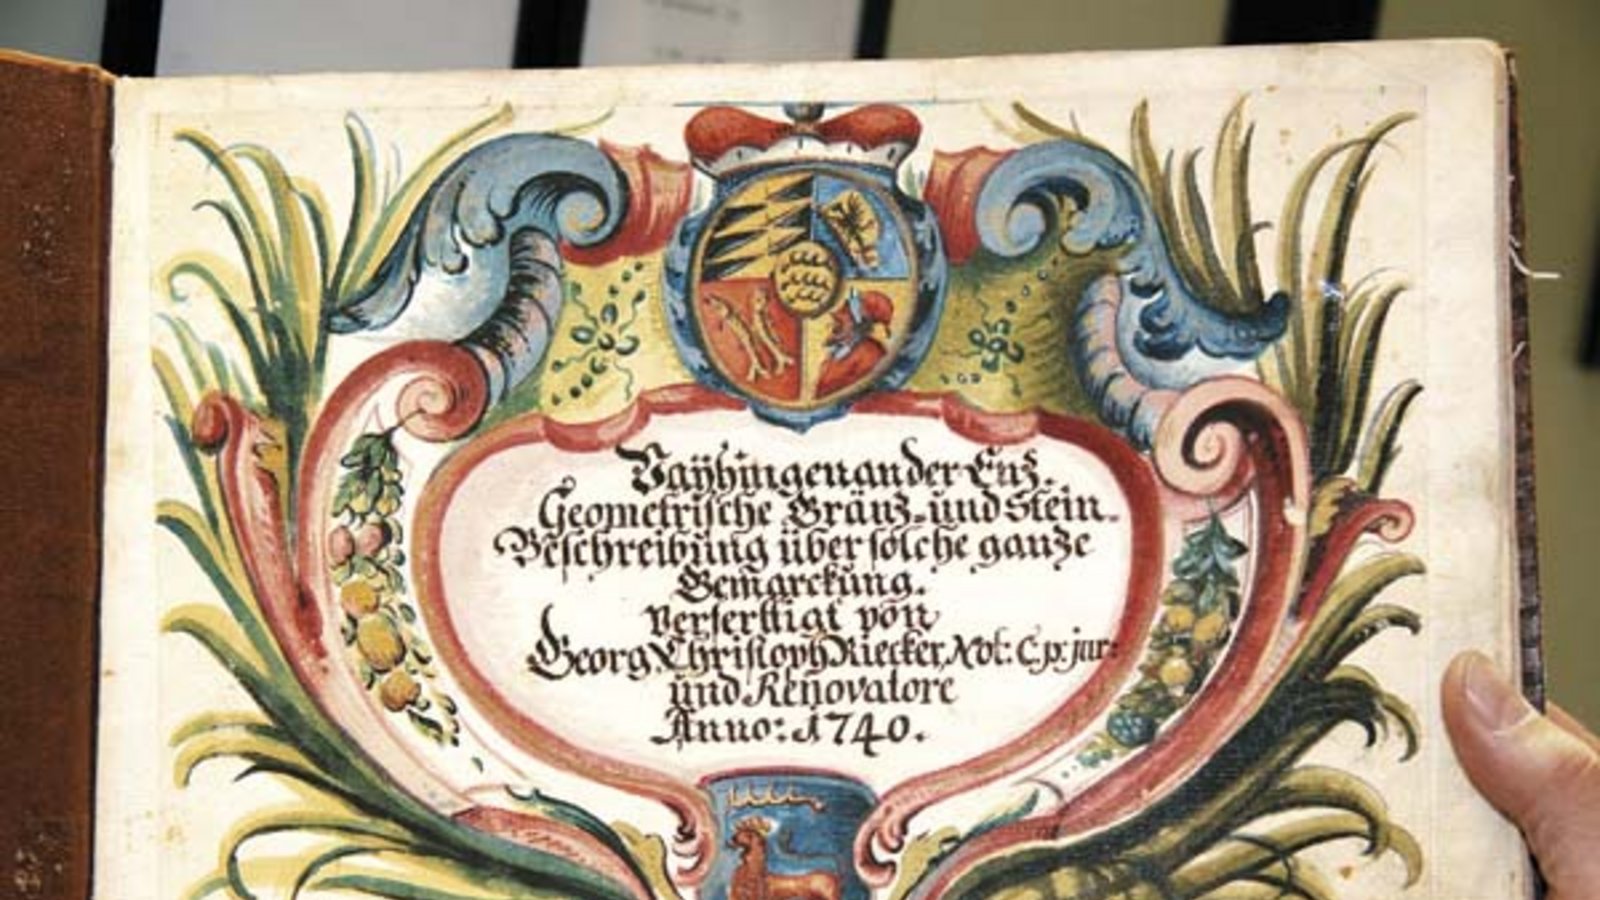 Vaÿhingen an der Enz.
Geometrische Gränz- und Stein-
Beschreibung über solche ganze
Gemarckung.
verferttigt von
Georg Christoph Riecker, Not: C. p. jur:
und Renovatore
Anno: 1740.